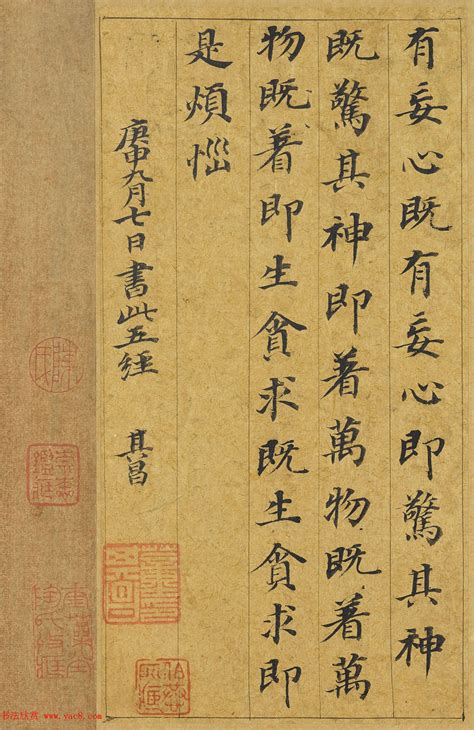 有妄心既有妄心即驚其神
既驚其神即著萬物既著萬
物既著即生貪求既生貪求即
是煩惱
庚申九月七日書此五經 其昌
书法欣赏 www.yac8.com